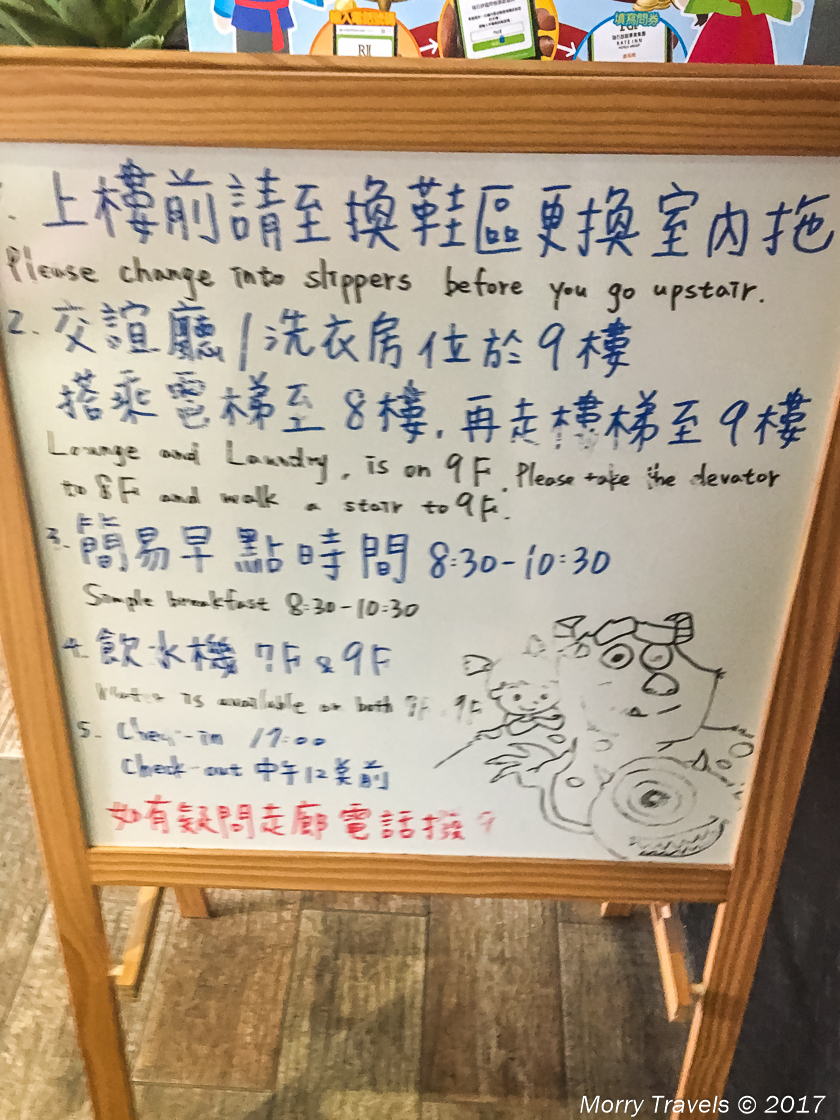 填寫問券
上樓前請至換鞋區更換室內拖
Please change into slippers before you go upstair.
2. 交誼廳/洗衣房位於9樓
搭乘電梯至8樓, 再走樓梯至9樓
Lounge and Laundry, is on 9F. Please take the elevator
to 8F and walk a stair to 9F.
3. 簡易早點時間 8:30-10:30
Simple breakfast 8:30-10:30
4. 飲水機 7F & 9F
Water is available on both 9F
5. Check-in 17:00
Check-out 中午12 前
如有疑問走廊電話撥9
Morry Travels © 2017